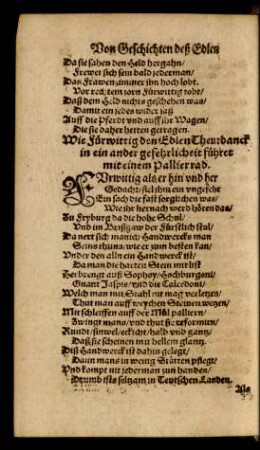 Von Geschichten deß Edlen
Da sie sahen den Held hergahn/
Frewet sich sein bald jederman/
Das Frawenzimmer ihn hoch lobt.
Vor rechtem zorn Fürwittig tobt/
Daß dem Held nichts geschehen was/
Damit ein jedes wider saß
Auff die Pferdt vnd auff ihr Wagen/
Die sie daher hetten getragen.
Wie Fürwittig den Edlen Theurdanck
in ein ander gefehrlicheit führet
mit einem Pallierrad.
Fürwittig als er hin vnd her
Gedacht: fiel ihm ein vngefehr
Ein sach die fast sorglichen was/
Wie ihr hernach werd hören das
Zu Fryburg da die hohe Schul/
Vnd im Breißgaw der Fürstlich stul/
Da nert sich manich Handwercks man
Seins thuns/ wie er zum besten kan/
Vnder den alln ein Handwerck ist/
Da man die harten Stein mit list
Herbrengt auß Sophoy/ Hochburgoni/
Gnant Jaspis/ vnd die Calcedoni/
Welch man mit Stahl nit mag verletzen/
Thut man auff weychen Steinen wetzen/
Mit schleiffen auff der Mül palliern/
Zwingt mans/ vnd thut sie reformirn/
Rundt/ simwel/ eckicht/ halb vnd gantz/
Daß sie scheinen mit hellem glantz.
Diß Handwerck ist dahin gelegt/
Dann mans in wenig Stätten pflegt/
Vnd kompt nit jederman zun handen/
Drumb ists seltzam in Teutschen Landen.
Als